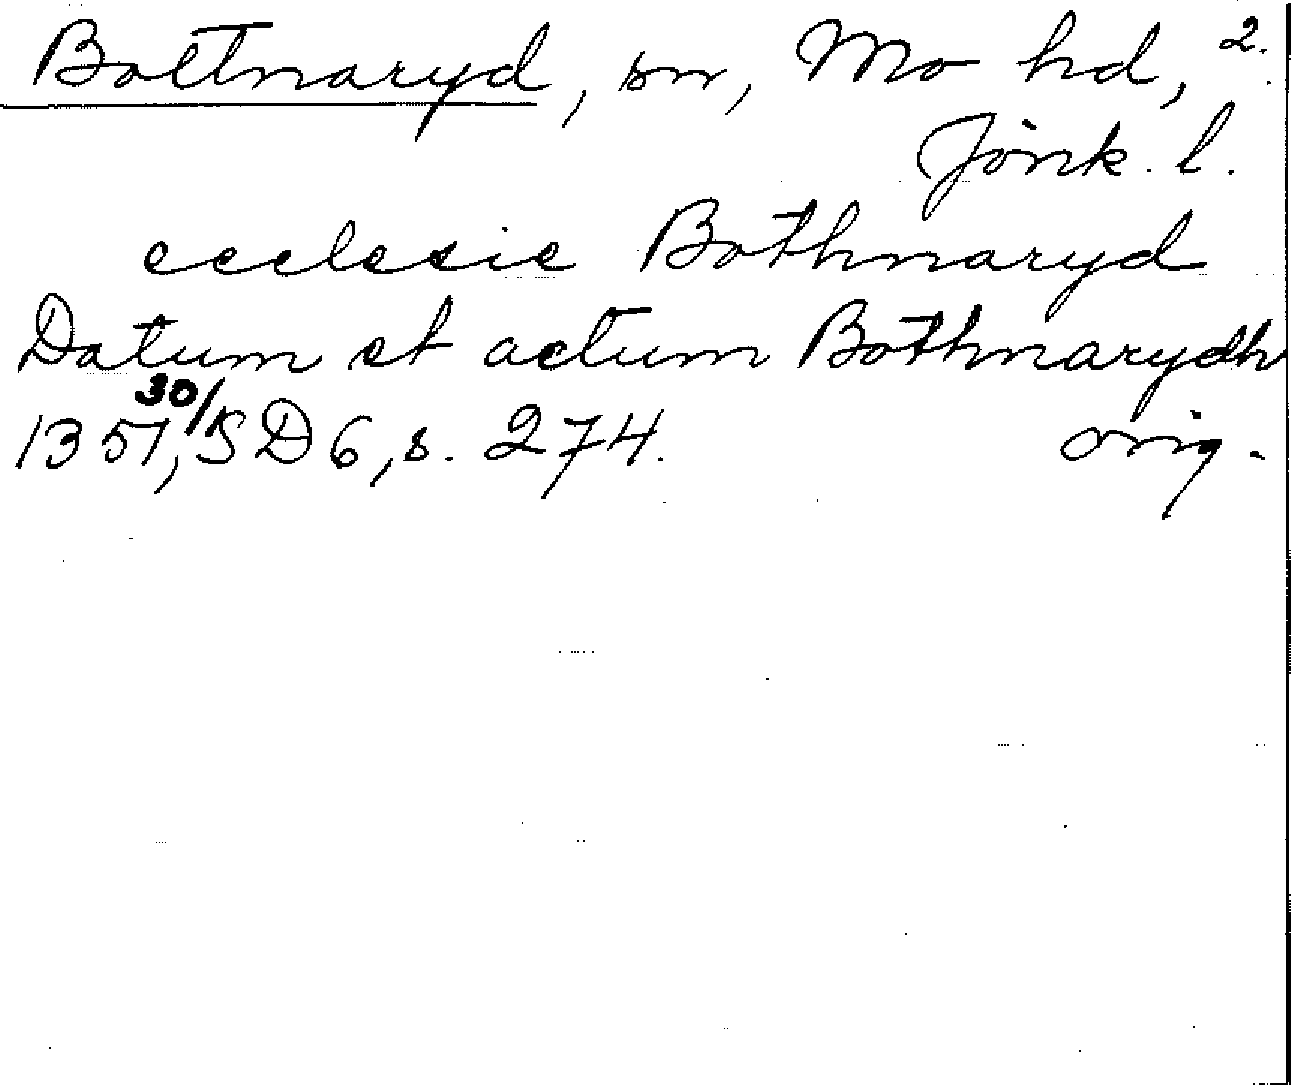 Bottnaryd, sn, Mo hd, 2.
Jönk. l.
ecclesie Bothnaryd
Datum et actum Bothnarydh
30/
1351, SD 6, s. 274. orig.